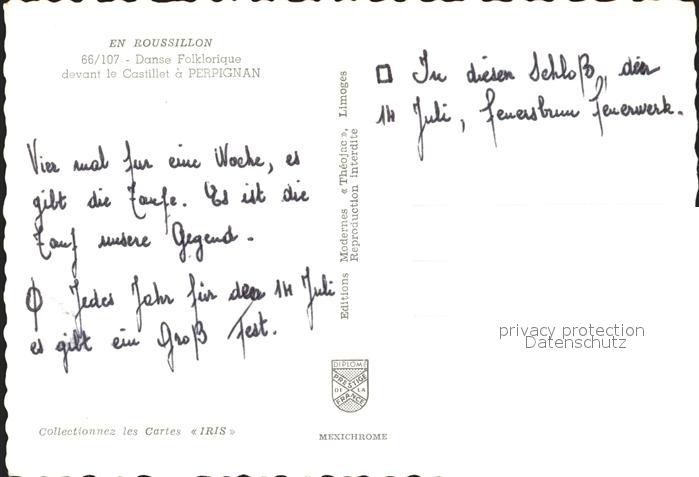 EN ROUSSILLON
66/107 - Danse Folklorique
devant le Castillet à PERPIGNAN
Vier mal fur eine Woche, es
gibt die Taufe. Es ist die
Tauf unsere Gegend.
Jedes Jahr für den 14 Juli
es gibt ein Groß Fest.
Collectionnez les Cartes « IRIS »
Editions Modernes « Théojac », Limoges
Reproduction interdite
DIPLOME
PRESTIGE
DE LA
FRANCE
MEXICHROME
In diesen Schloß, den
14 Juli, feuersbrun feuerwerk.
privacy protection
Datenschutz